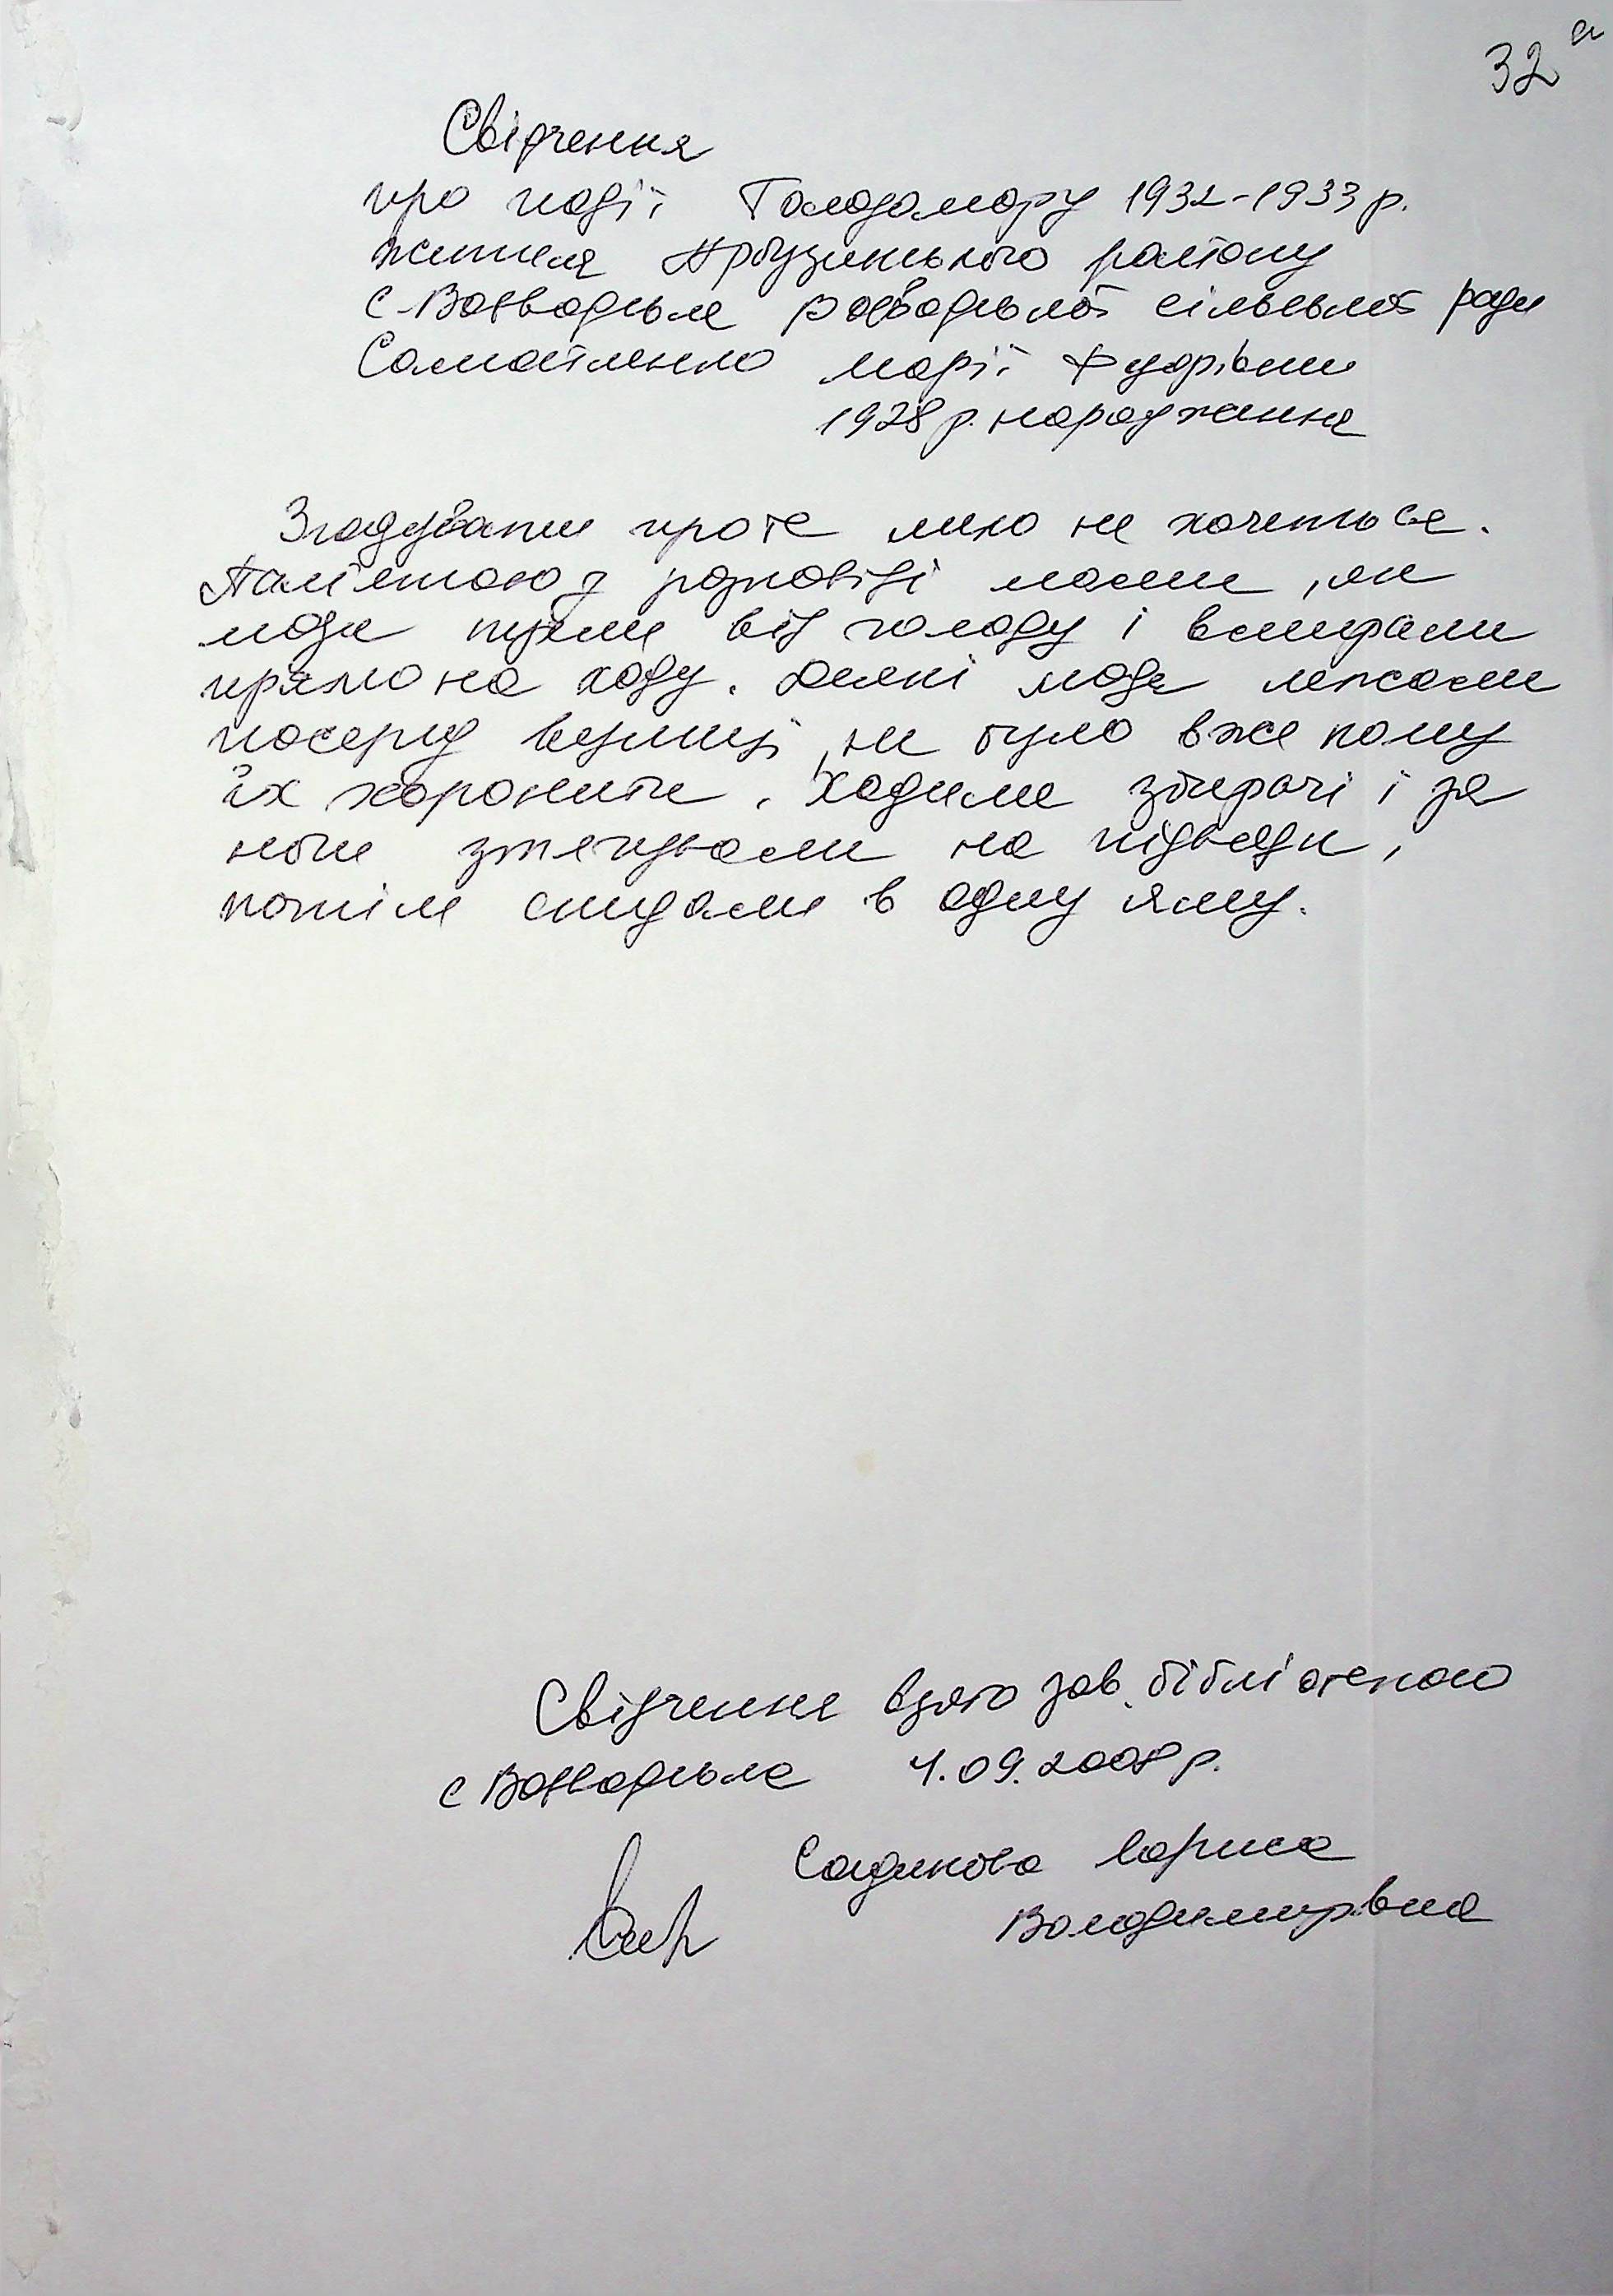 32 а
Свідчення
про події Голодомору 1932-1933 р.
жителя Арбузинського району
с Воєводське Воєводської сільської ради
Самойленко Марії Федорівни
1928 р. народження
Згадувати про те лихо не хочеться.
Пам'ятаю з розповіді мами, як
люди пухли від голоду і вмирали
прямо на ходу. Деякі люди лежали
посеред вулиці, не було вже кому
їх хоронити. Ходили збирачі і за
ноги стягували на підводи,
потім скидали в одну яму.
Свідчення взято зав. бібліотекою
с Воєводське 4.09.2008 р.
Садикова Лариса
Володимирівна